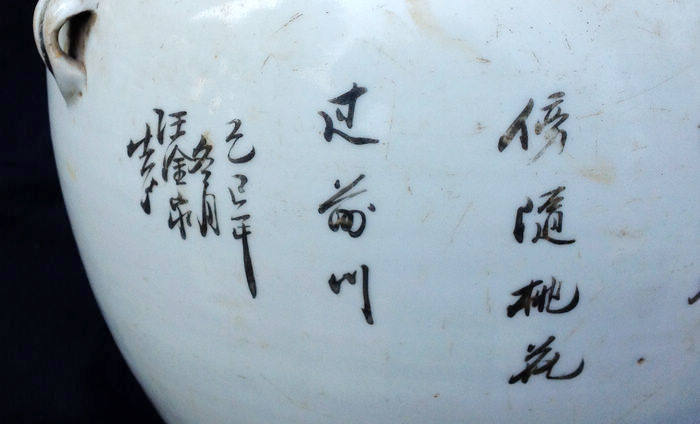 傍隨桃花
过前川
乙巳年
冬月
汪